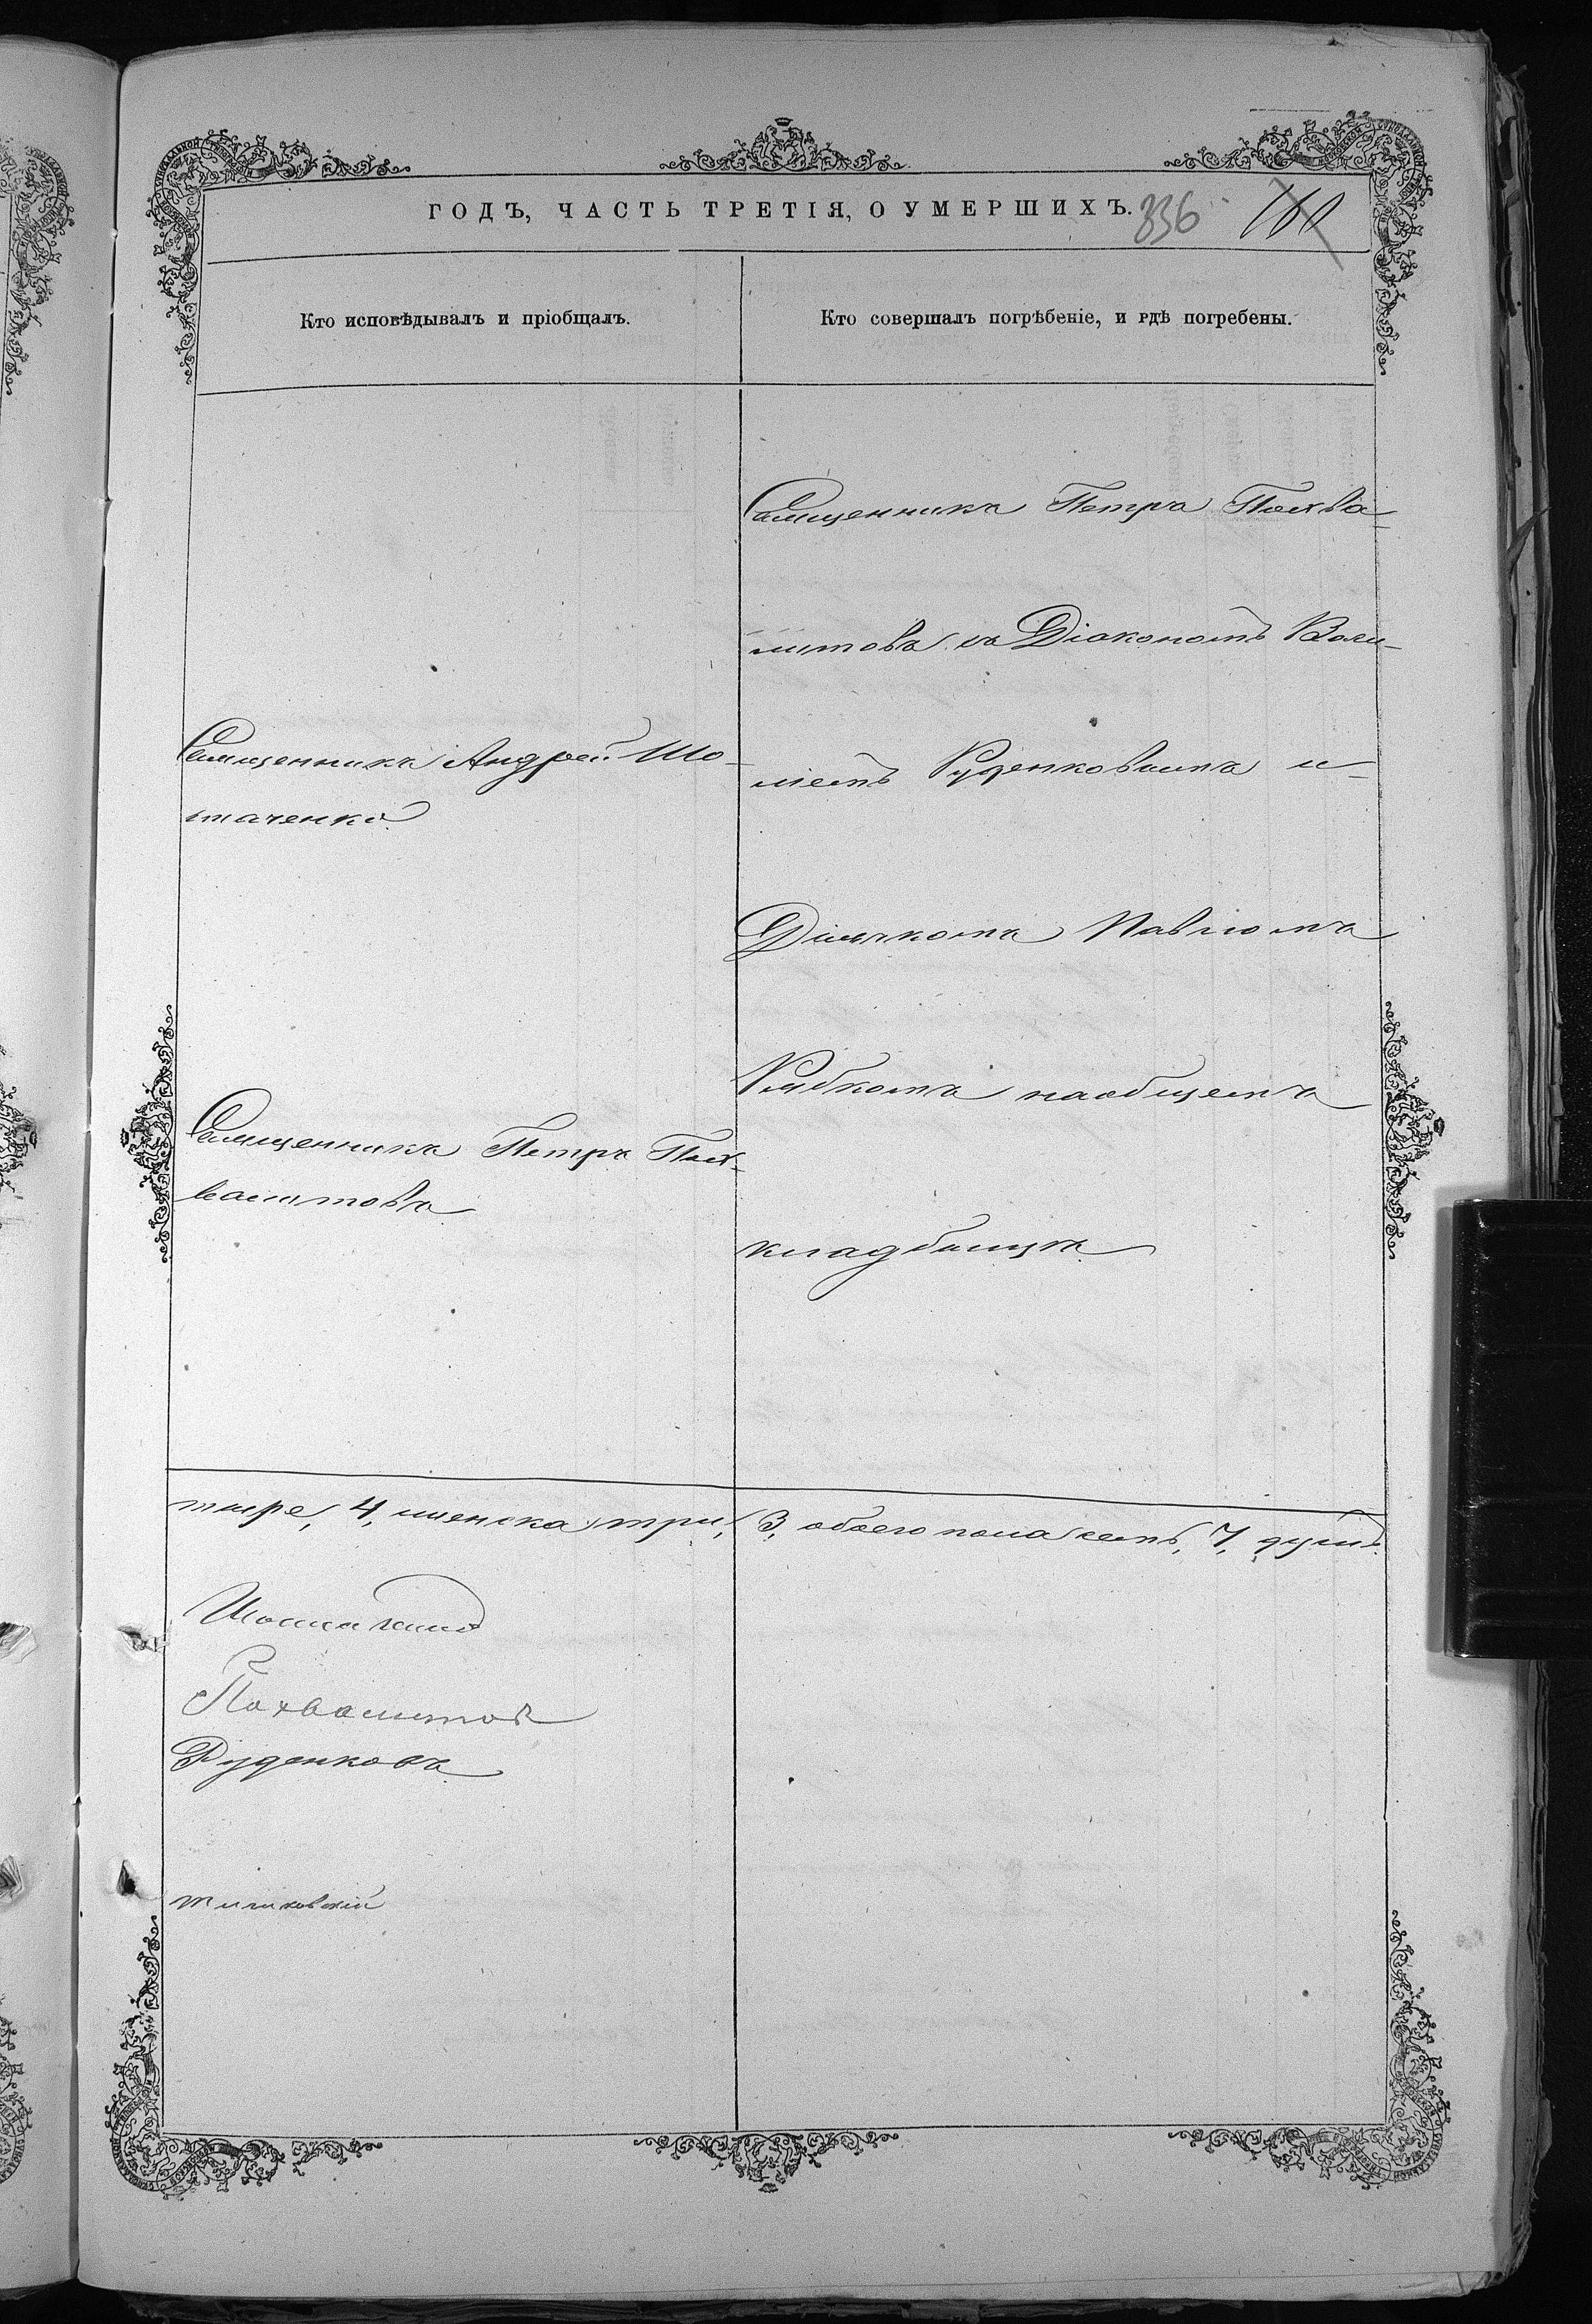 ГОДЪ, ЧАСТЬ ТРЕТІЯ, О УМЕРШИХЪ. 336
Кто исповѣдывалъ и пріобщалъ.
Кто совершалъ погрѣбеніе, и гдѣ погребены.
Священникъ Андрей Шо-
таченко
Священникъ Петръ Пох-
валитовъ
Священникъ Петръ Похва-
литовъ съ Діакономъ Васи-
ліемъ Руденковымъ и
Дьячкомъ Павломъ
Рябкомъ на общемъ
кладбищѣ
тыре, 4, женска три, 3, обоего пола семь, 7, душъ.
Похвалитовъ
Руденковъ